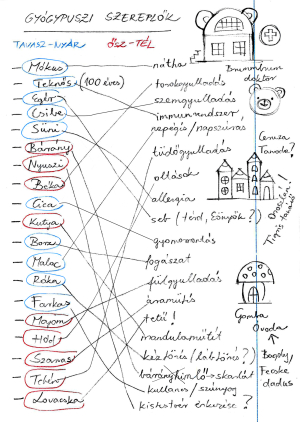 GYÓGYPUSZI SZEREPLŐK
TAVASZ-NYÁR ŐSZ-TÉL
– Mókus
– Teknős (100 éves)
– Egér
– Csibe
– Süni
– Bárány
– Nyuszi
– Béka
– Cica
– Kutya
– Borz
– Malac
– Róka
– Farkas
– Majom
– Hód
– Szarvas
– Tehén
– Lovacska
nátha
torokgyulladás
szemgyulladás
immunrendszer
leégés / napszúrás
tüdőgyulladás
oltások
allergia
seb (térd, könyök?)
gyomorrontás
fogászat
fülgyulladás
áramütés
tetű!
mandulaműtét
kéztörés (lábtörés?)
bárányhimlő → skarlát
kullancs / szúnyog
kistestvér érkezése?
Brummbrum
doktor
Tanoda?
Oroszlán!
Tigris tanár
Gomba
Óvoda
Bagoly /
Fecske
dadus